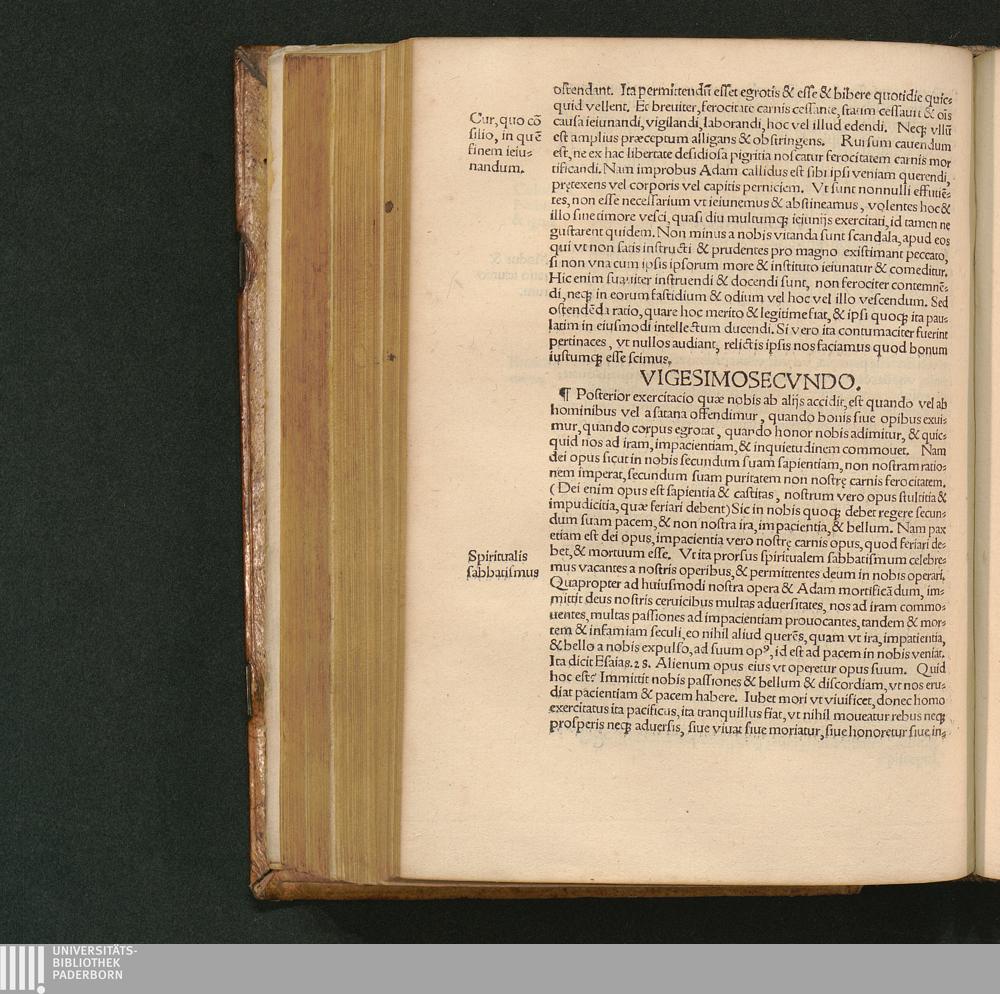 ostendant. Ita permittendū esset egrotis & esse & bibere quotidie quic-
quid vellent. Et breuiter, ferocitate carnis cessante, statim cessauit & oīs
causa ieiunandi, vigilandi, laborandi, hoc vel illud edendi. Neqꝫ vllū
est amplius præceptum alligans & obstringens. Rursum cauendum
est, ne ex hac libertate desidiosa pigritia noscatur ferocitatem carnis mor
tificandi. Nam improbus Adam callidus est sibi ipsi veniam querendi,
prętexens vel corporis vel capitis perniciem. Vt sunt nonnulli effutiē-
tes, non esse necessarium vt ieiunemus & abstineamus, volentes hoc &
illo sine timore vesci, quasi diu multumqꝫ ieiunijs exercitati, id tamen ne
gustarent quidem. Non minus a nobis vitanda sunt scandala, apud eos
qui vt non satis instructi & prudentes pro magno existimant peccato,
si non vna cum ipsis ipsorum more & instituto ieiunatur & comeditur.
Hic enim suauiter instruendi & docendi sunt, non ferociter contemnē-
di, neqꝫ in eorum fastidium & odium vel hoc vel illo vescendum. Sed
ostendēda ratio, quare hoc merito & legitime fiat, & ipsi quoqꝫ ita pau-
latim in eiusmodi intellectum ducendi. Si vero ita contumaciter fuerint
pertinaces, vt nullos audiant, relictis ipsis nos faciamus quod bonum
iustumqꝫ esse scimus.
Cur, quo cō
silio, in quē
finem ieiu-
nandum.
VIGESIMOSECVNDO.
¶ Posterior exercitacio quæ nobis ab alijs accidit, est quando vel ab
hominibus vel a satana offendimur, quando bonis siue opibus exui-
mur, quando corpus egrotat, quando honor nobis adimitur, & quic-
quid nos ad iram, impacientiam, & inquietudinem commouet. Nam
dei opus sicut in nobis secundum suam sapientiam, non nostram ratio-
nem imperat, secundum suam puritatem non nostrę carnis ferocitatem.
(Dei enim opus est sapientia & castitas, nostrum vero opus stultitia &
impudicitia, quæ feriari debent) Sic in nobis quoqꝫ debet regere secun-
dum suam pacem, & non nostra ira, impacientia, & bellum. Nam pax
etiam est dei opus, impacientia vero nostrę carnis opus, quod feriari de-
bet, & mortuum esse. Vt ita prorsus spiritualem sabbatismum celebre-
mus vacantes a nostris operibus, & permittentes deum in nobis operari.
Quapropter ad huiusmodi nostra opera & Adam mortificādum, im-
mittit deus nostris ceruicibus multas aduersitates, nos ad iram commo-
uentes, multas passiones ad impacientiam prouocantes, tandem & mor-
tem & infamiam seculi, eo nihil aliud querēs, quam vt ira, impatientia,
& bello a nobis expulso, ad suum opꝰ, id est ad pacem in nobis veniat.
Ita dicit Esaias. 28. Alienum opus eius vt operetur opus suum. Quid
hoc est? Immittit nobis passiones & bellum & discordiam, vt nos eru-
diat pacientiam & pacem habere. Iubet mori vt viuificet, donec homo
exercitatus ita pacificus, ita tranquillus fiat, vt nihil moueatur rebus neqꝫ
prosperis neqꝫ aduersis, siue viuat siue moriatur, siue honoretur siue in-
Spiritualis
sabbatismus
UNIVERSITÄTS-
BIBLIOTHEK
PADERBORN